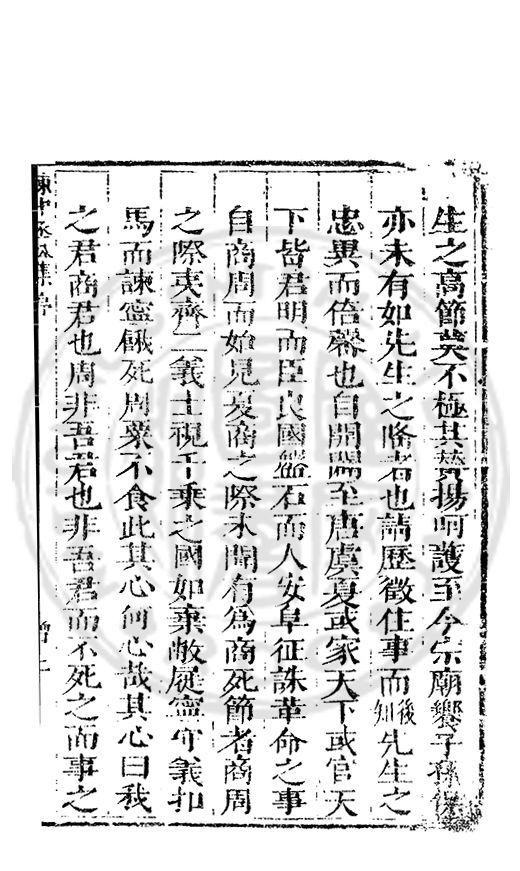 生之高節莫不極其贊揚呵護至今宗廟饗子孫保
亦未有如先生之隆者也請歷徵往事而後知先生之
忠異而倍馨也自開闢至唐虞夏或家天下或官天
下皆君明而臣良國盤石而人安阜征誅革命之事
自商周而始見夏商之際未聞有為商死節者商周
之際夷齊二義士視千乘之國如棄敝屣寧守義扣
馬而諫寧餓死周粟不食此其心何心哉其心曰我
之君商君也周非吾君也非吾君而不死之而事之
陳中丞公集序